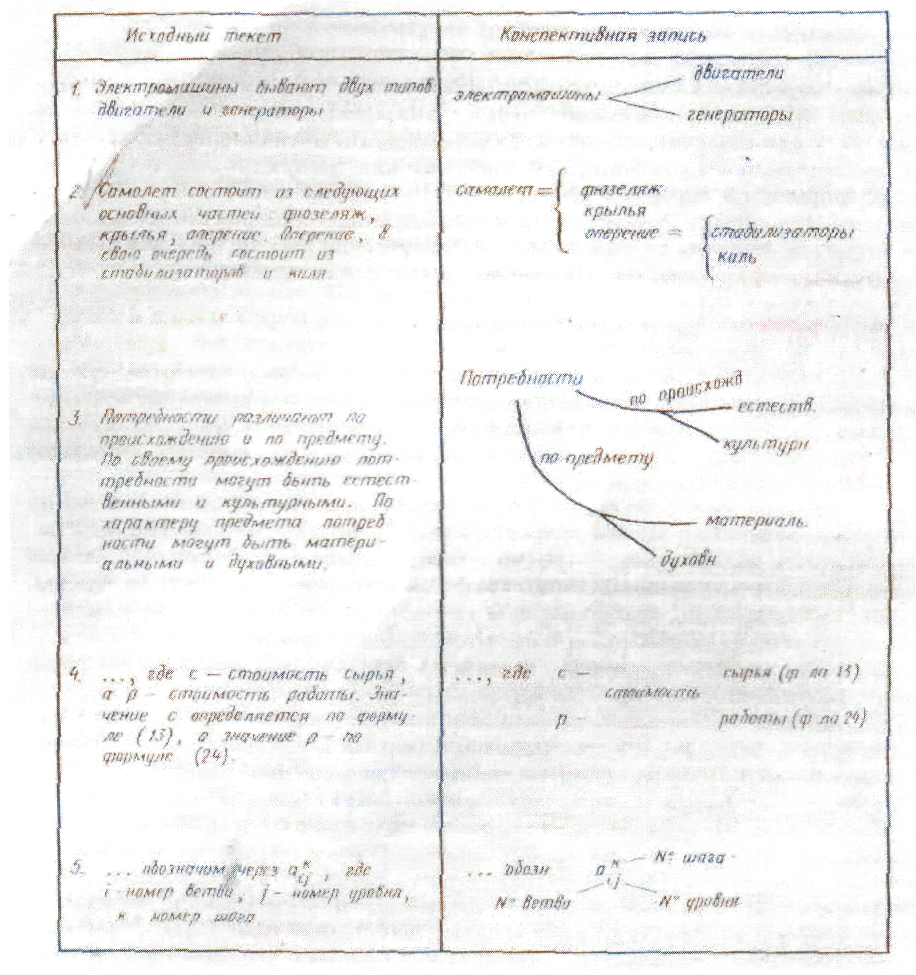 Исходный текст
Конспективная запись
1. Электромашины бывают двух типов
двигатели и генераторы
электромашины
двигатели
генераторы
2. Самолет состоит из следующих
основных частей фюзеляж,
крылья, оперение. Оперение, в
свою очередь состоит из
стабилизаторов и киля
самолет = { фюзеляж
крылья
оперение = { стабилизаторы
киль
3. Потребности различают по
происхождению и по предмету.
По своему происхождению пот-
требности могут быть естест-
венными и культурными. По
характеру предмета потреб
ности могут быть матери-
альными и духовными.
Потребности
по происхожд
естеств.
культурн
по предмету
материаль.
духовн
4. ..., где с – стоимость сырья,
а р – стоимость работы. Зна-
чение с определяется по форму
ле (13), а значение р – по
формуле (24).
..., где с – сырья (ф ла 13)
стоимость
р работы (ф ла 24)
5. ... обозначим через a^к_ij, где
i - номер ветви, j - номер уровня,
к номер шага
... обозн a^к_ij № шага
№ ветви № уровня